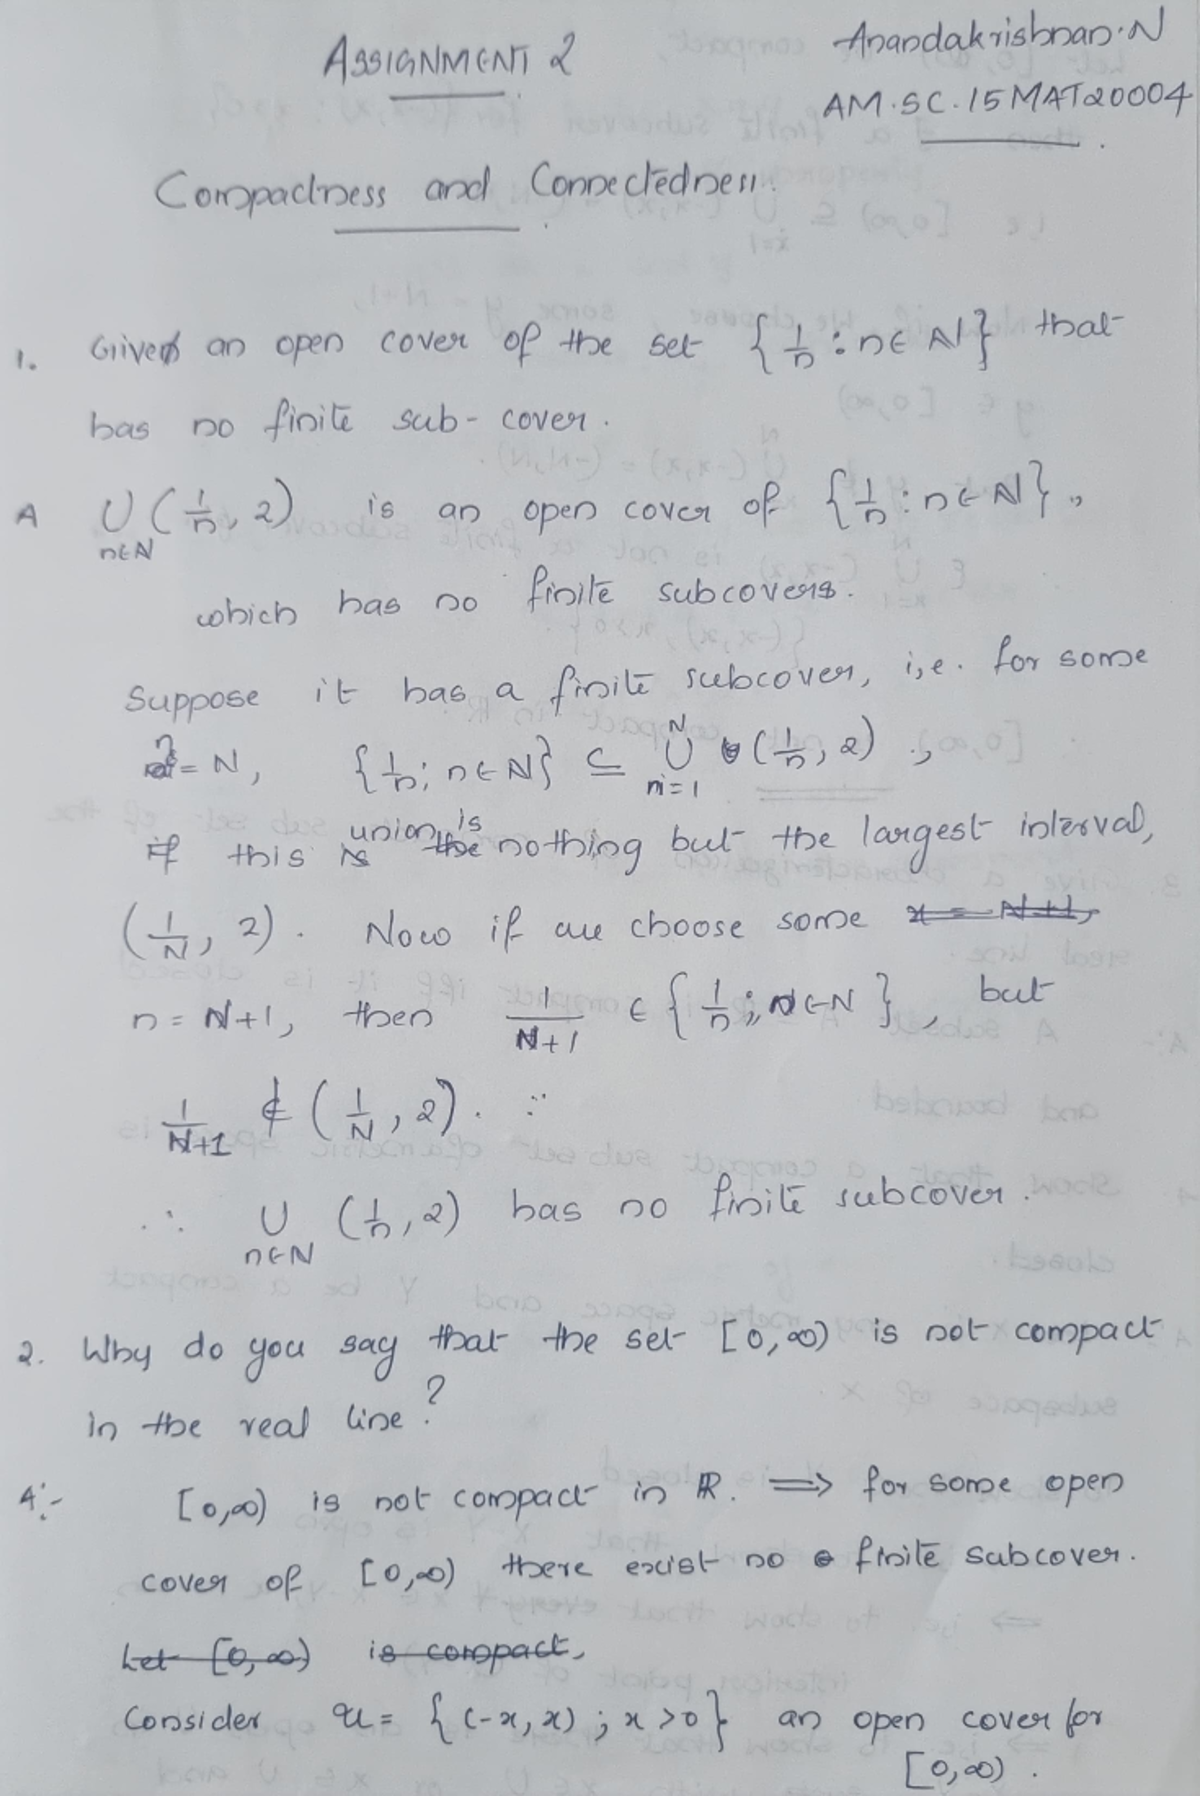 ASSIGNMENT 2
Anandakrishnan.N
AM.SC.I5MAT20004
Compactness and Connectedness.
1. Given an open cover of the set {1/n : n∈ℕ} that
has no finite sub-cover.
A ∪_{n∈N} (1/n, 2) is an open cover of {1/n : n∈ℕ},
which has no finite subcovers.
Suppose it has a finite subcover, i,e. for some
n = N, {1/n; n∈N} ⊆ ∪_{n=1}^{N} (1/n, 2),
if this union is nothing but the largest interval,
(1/N, 2). Now if we choose some ~~x = N+1,~~
n = N+1, then 1/(N+1) ∈ {1/n ; n∈N}, but
1/(N+1) ∉ (1/N, 2).
∴ ∪_{n∈N} (1/n, 2) has no finite subcover.
2. Why do you say that the set [0,∞) is not compact
in the real line?
A:- [0,∞) is not compact in ℝ. ⟹ for some open
cover of [0,∞) there exist no finite subcover.
~~Let [0,∞) is compact,~~
Consider 𝒰 = {(-x, x) ; x >0} an open cover for
[0,∞).